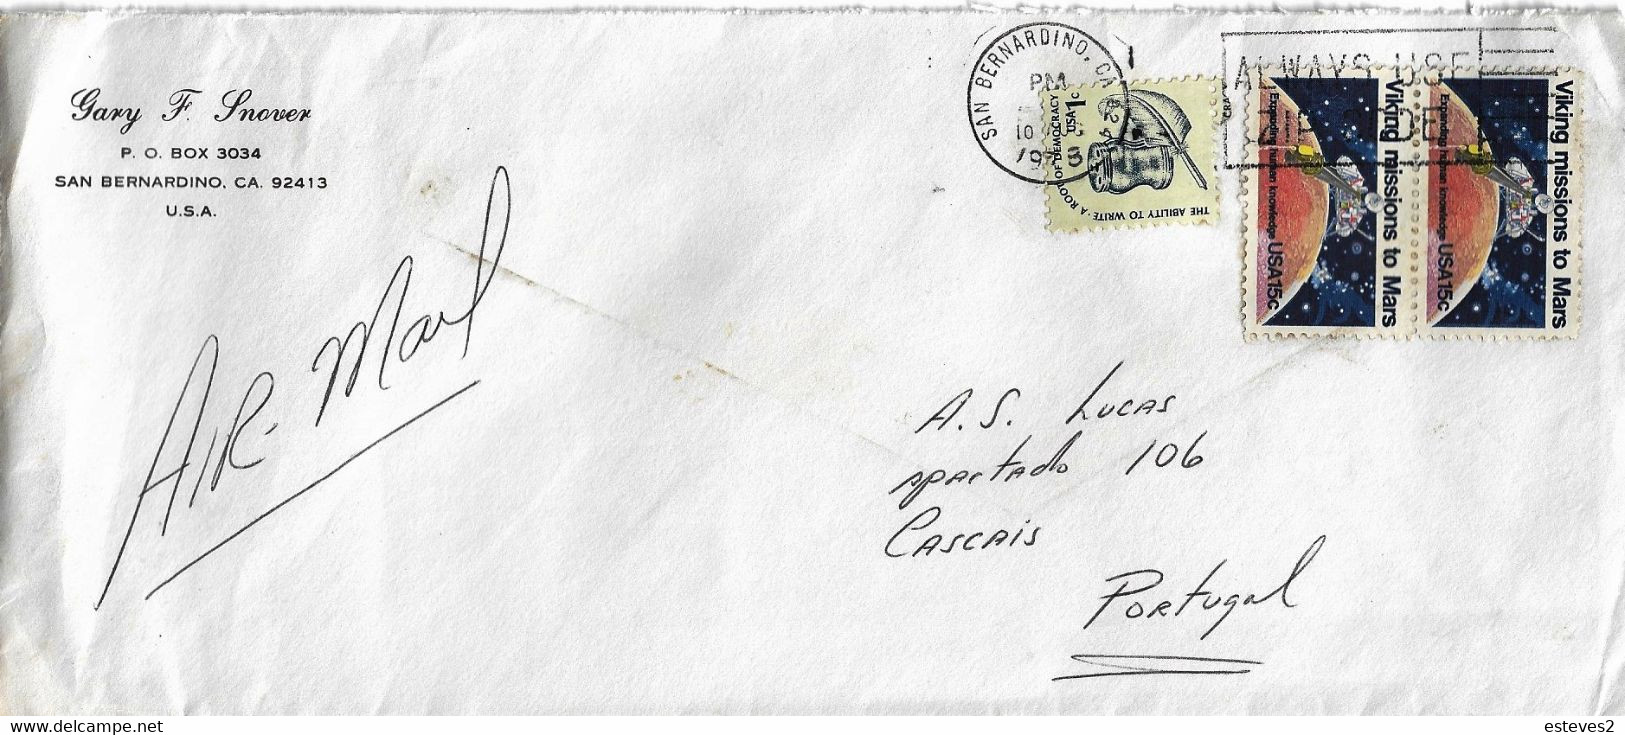 Gary F. Snover
P. O. BOX 3034
SAN BERNARDINO, CA. 92413
U.S.A.
AIR Mail
SAN BERNARDINO, CA
PM
10
1978
USA 1c
A ROOT OF DEMOCRACY
THE ABILITY TO WRITE
ALWAYS USE
ZIP CODE
Viking missions to Mars
Expanding human knowledge USA 15c
Viking missions to Mars
Expanding human knowledge USA 15c
A.S. Lucas
apartado 106
Cascais
Portugal
esteves2